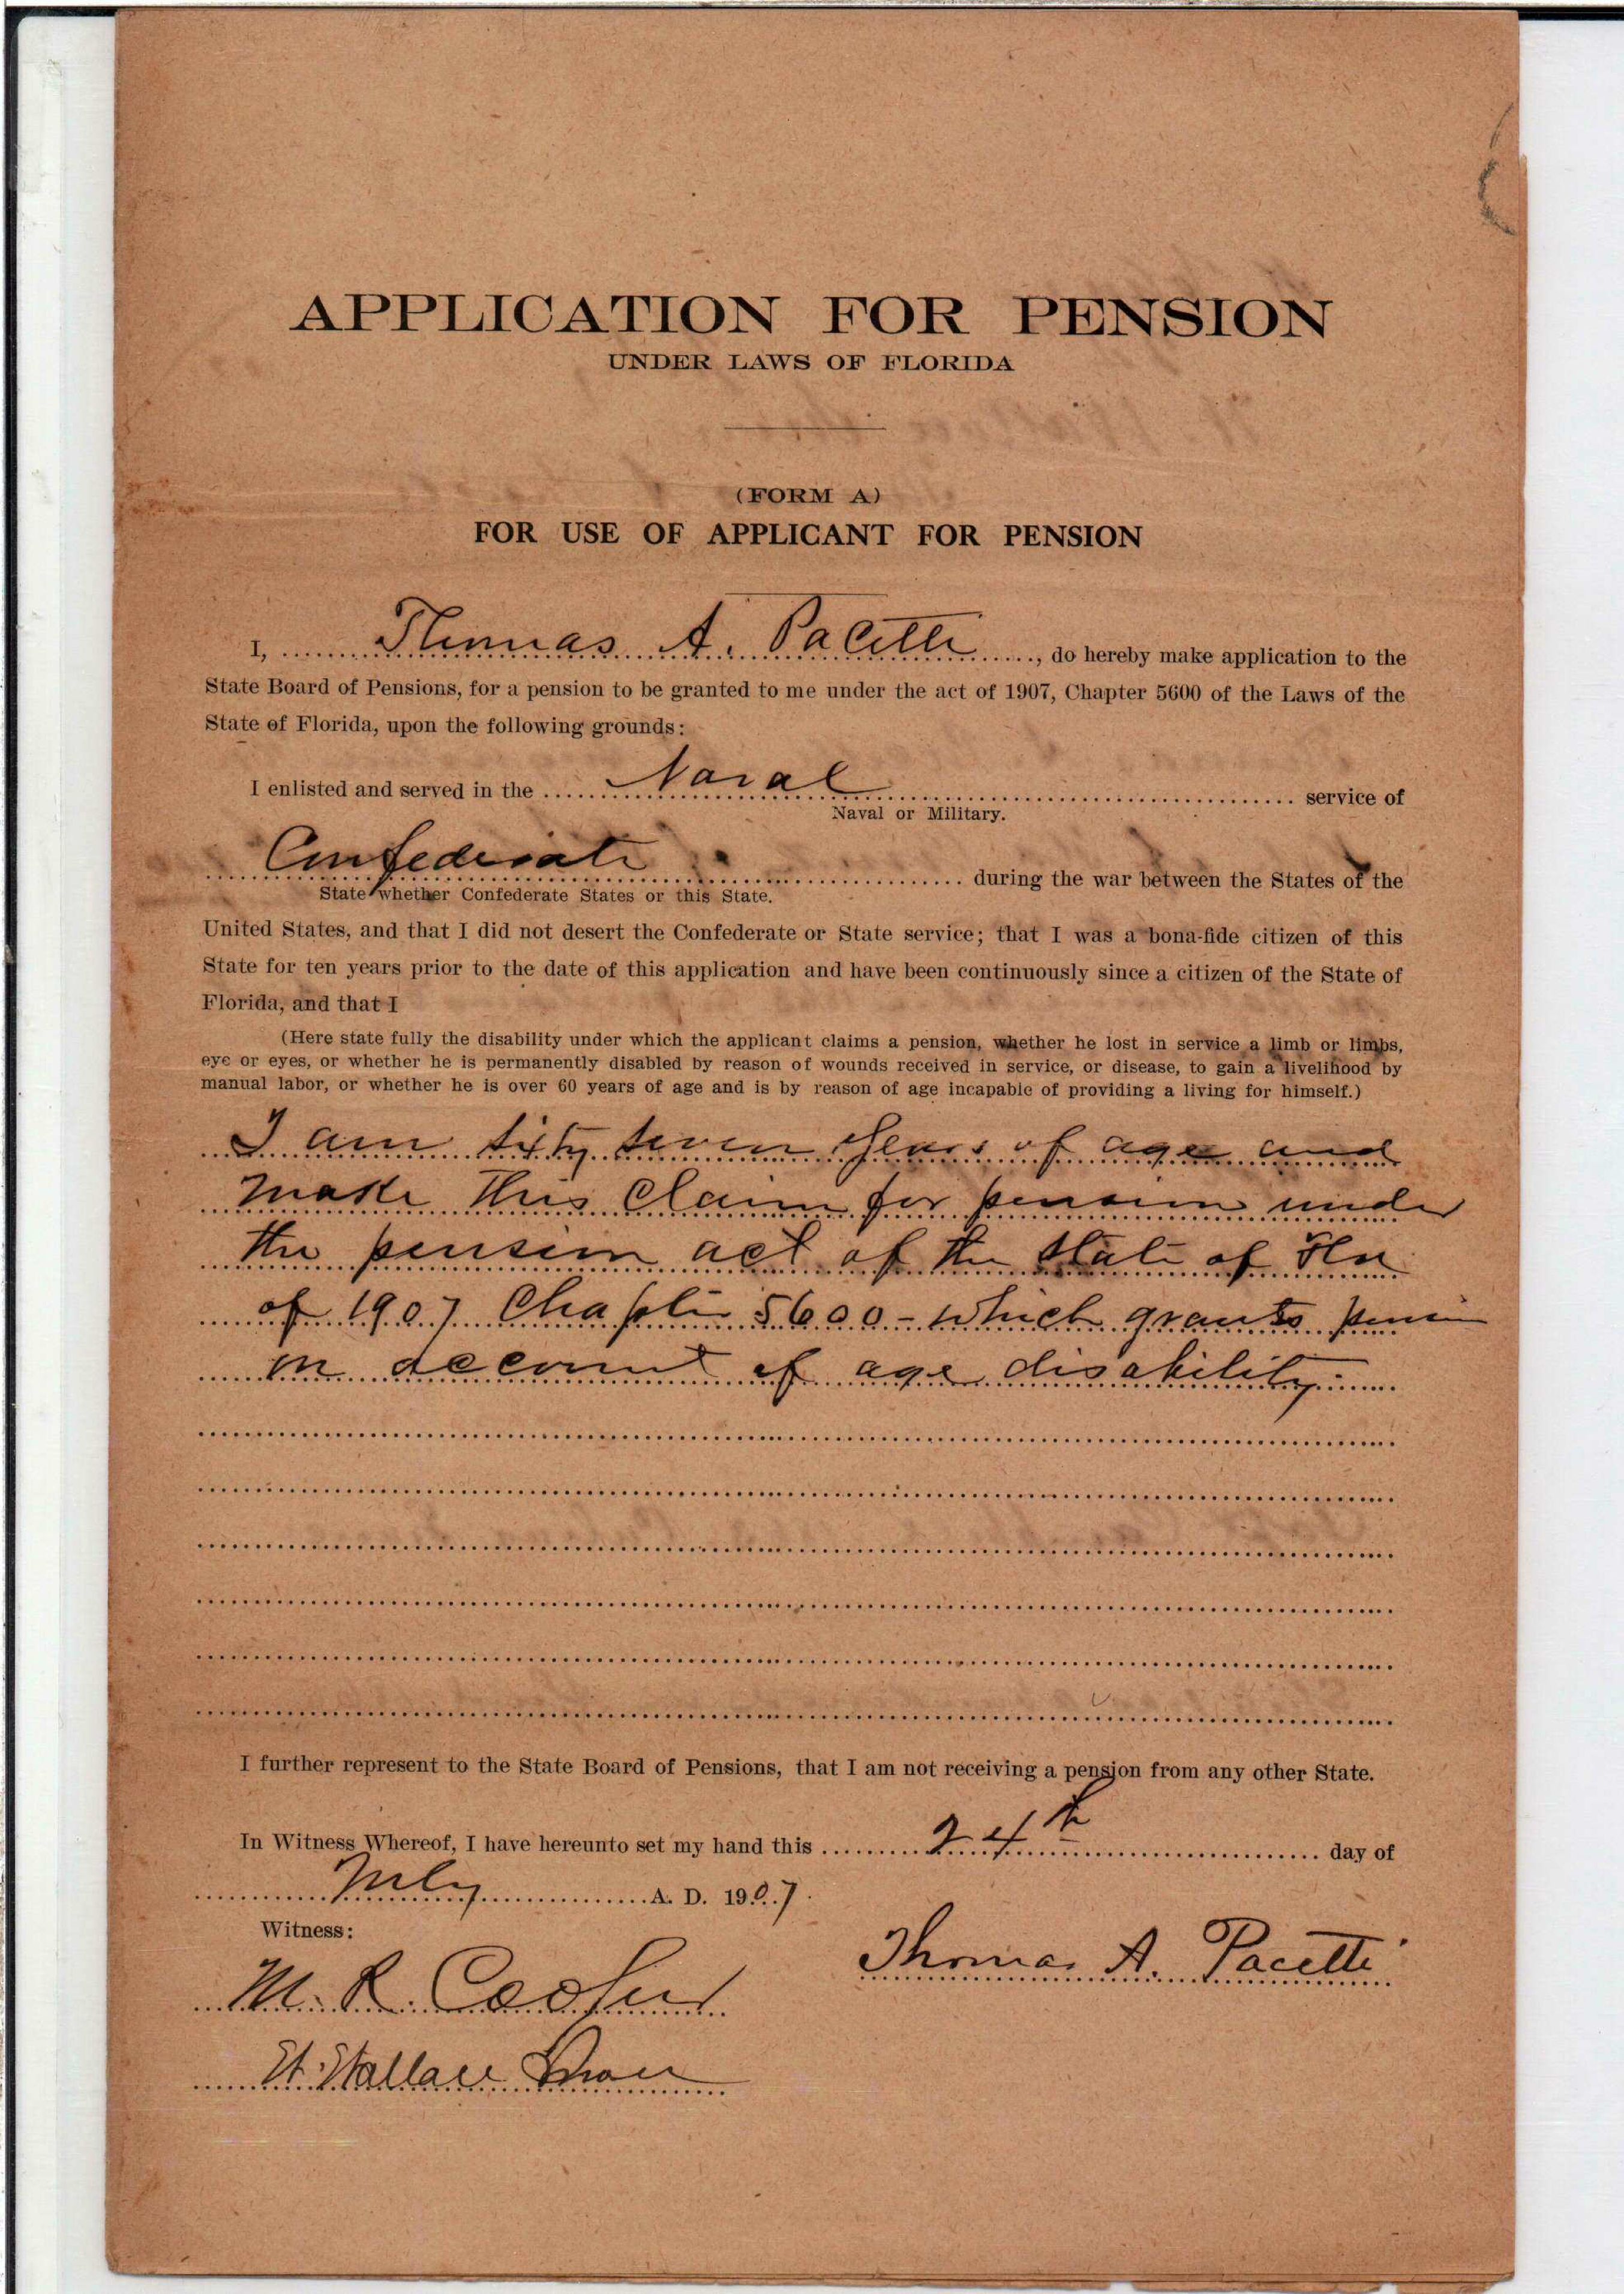 APPLICATION FOR PENSION
UNDER LAWS OF FLORIDA
(FORM A)
FOR USE OF APPLICANT FOR PENSION
I, Thomas A. Pacetti, do hereby make application to the
State Board of Pensions, for a pension to be granted to me under the act of 1907, Chapter 5600 of the Laws of the
State of Florida, upon the following grounds:
I enlisted and served in the Naval service of
Naval or Military.
Confederate during the war between the States of the
State whether Confederate States or this State.
United States, and that I did not desert the Confederate or State service; that I was a bona-fide citizen of this
State for ten years prior to the date of this application and have been continuously since a citizen of the State of
Florida, and that I
(Here state fully the disability under which the applicant claims a pension, whether he lost in service a limb or limbs,
eye or eyes, or whether he is permanently disabled by reason of wounds received in service, or disease, to gain a livelihood by
manual labor, or whether he is over 60 years of age and is by reason of age incapable of providing a living for himself.)
I am sixty seven years of age and
make this claim for pension under
the pension act of the State of Fla
of 1907 Chapter 5600 - which grants pension
on account of age disability.
I further represent to the State Board of Pensions, that I am not receiving a pension from any other State.
In Witness Whereof, I have hereunto set my hand this 24th day of
July A. D. 1907.
Witness:
Thomas A. Pacetti
M. R. Cooper
Wallace